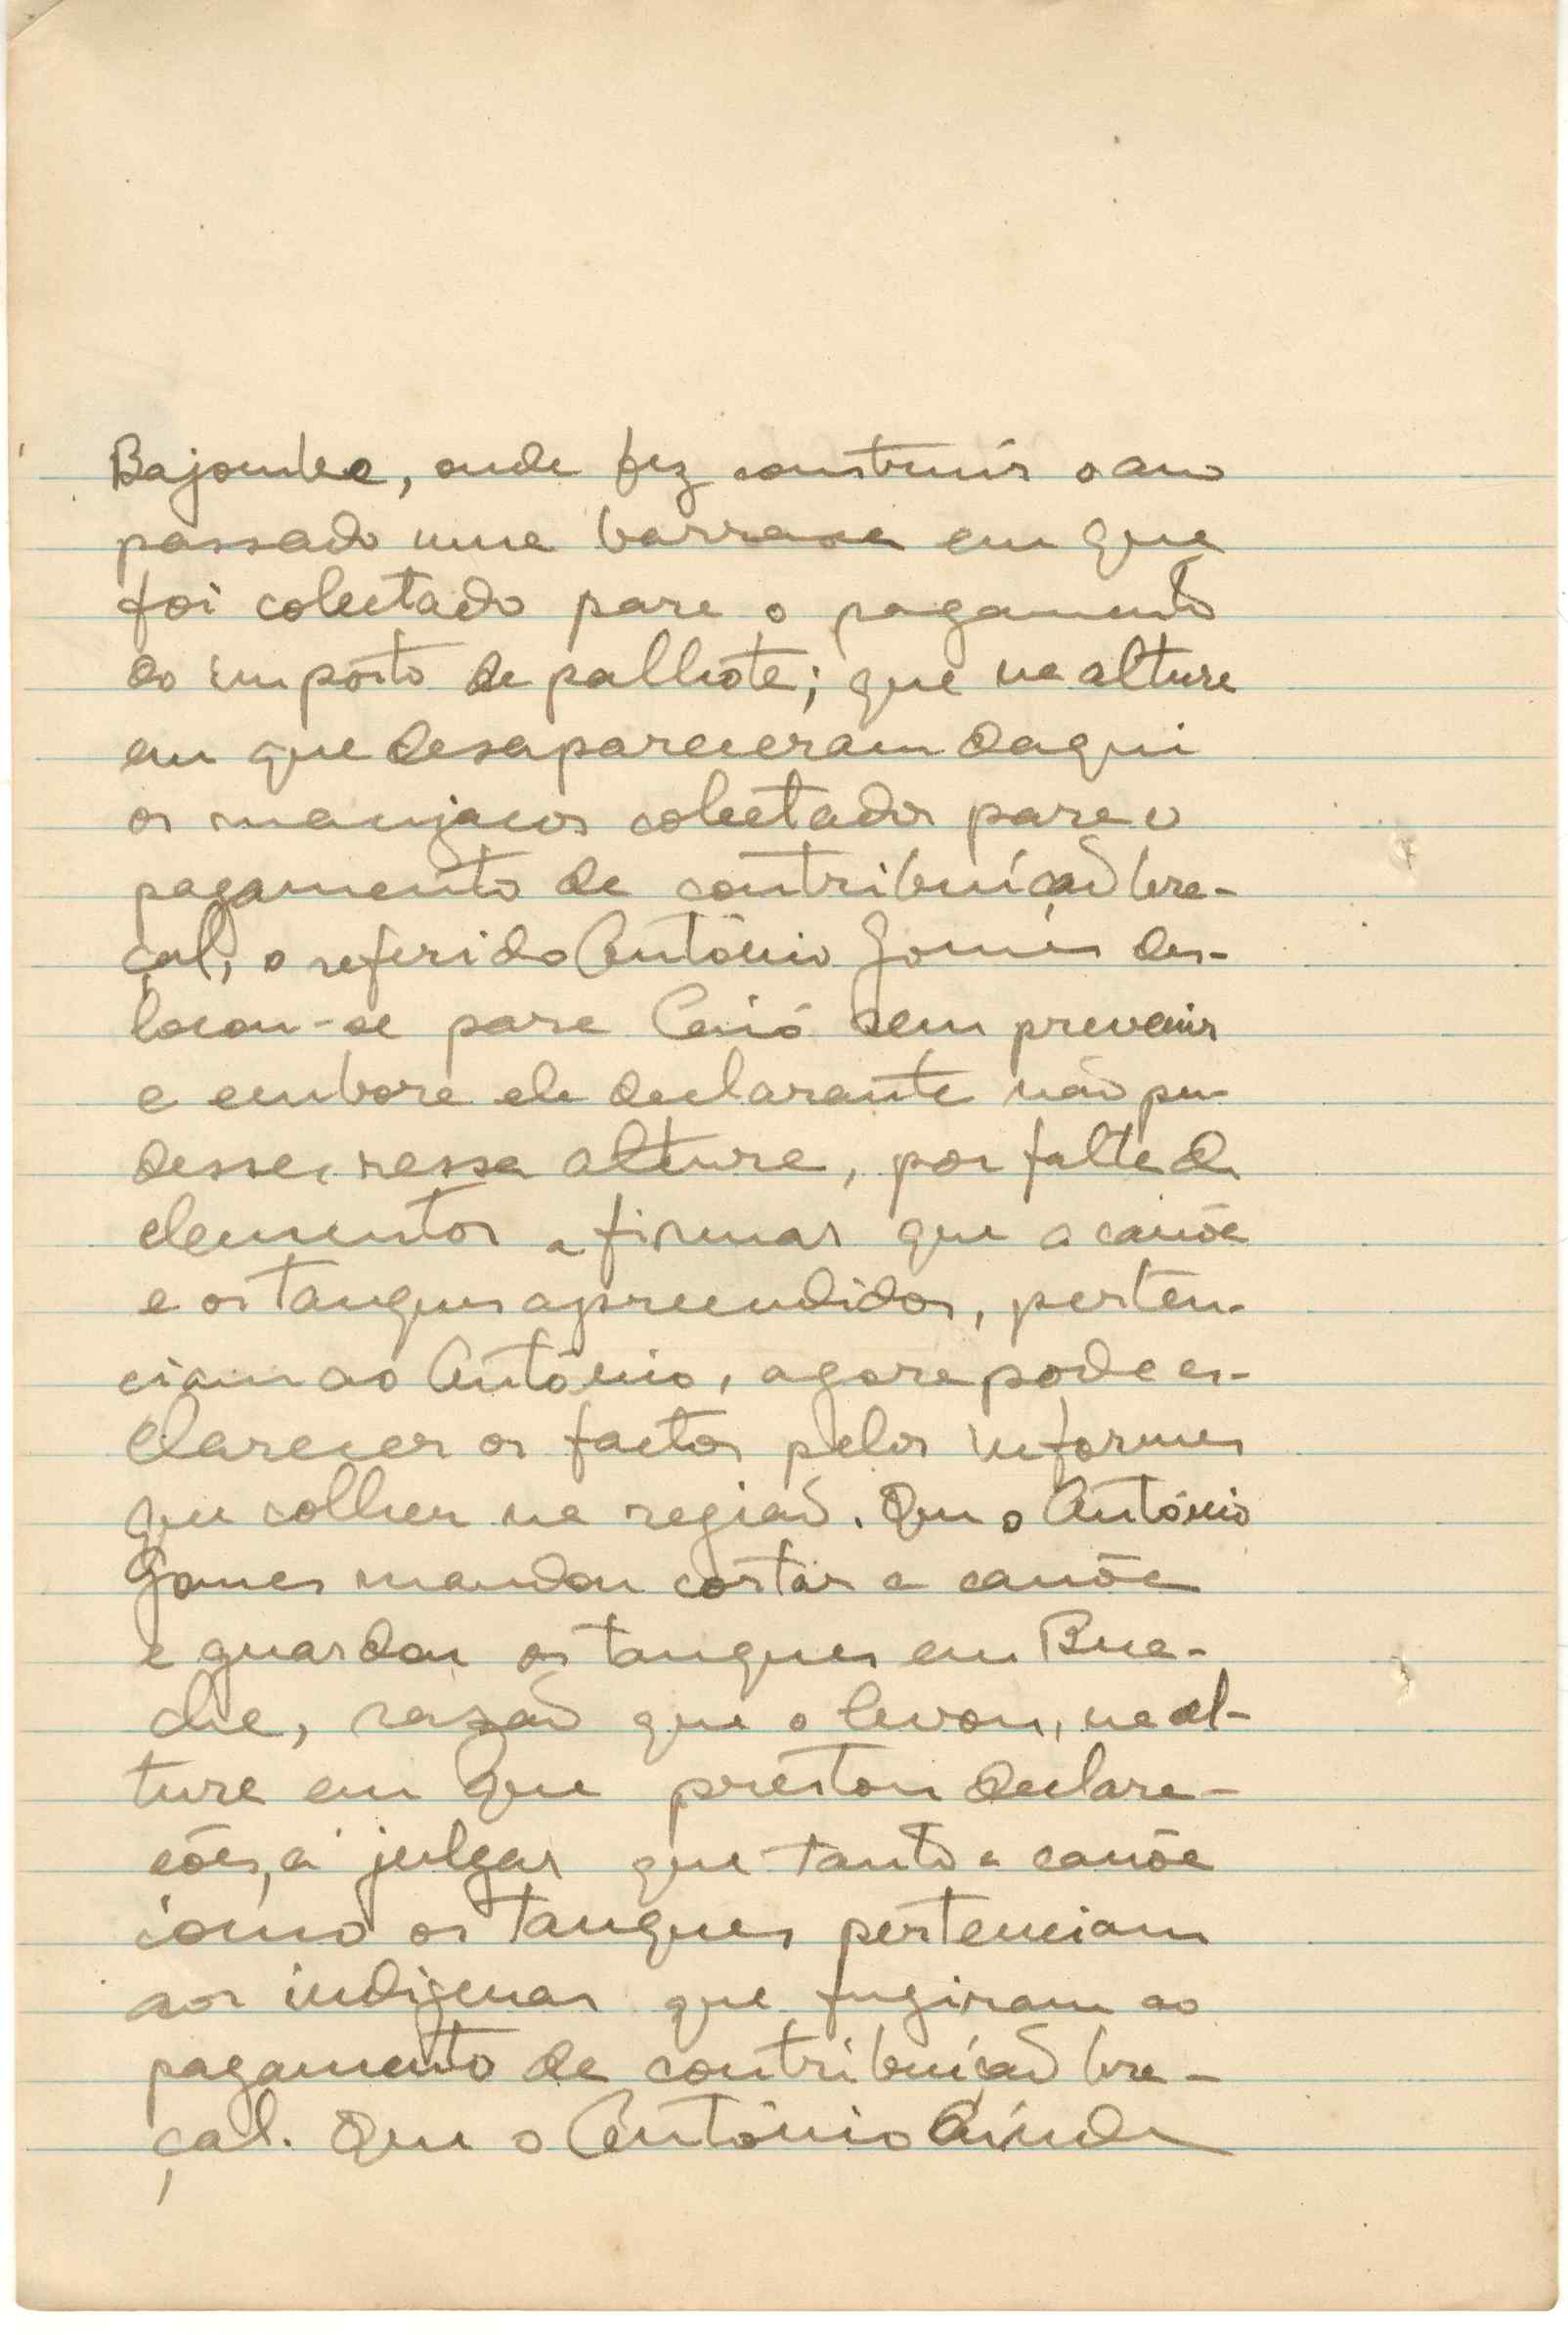 Bajomba, onde fez construir o ano
passado uma barraca em que
foi colectado para o pagamento
do imposto de palhota; que na altura
em que desapareceram daqui
os manjacos colectados para o
pagamento de contribuição bra-
çal, o referido António Gomes des-
locou-se para Caió sem prevenir
e embora ele declarante não pu-
desse, nessa altura, por falta de
elementos afirmar que a canôa
e os tanques apreendidos, perten-
ciam ao António, agora pode es-
clarecer os factos pelos informes
que colheu na região. Que o António
Gomes mandou cortar a canôa
e guardou os tanques em Bua-
che, razão que o levou, na al-
tura em que prestou declara-
ções, a julgar que tanto a canôa
como os tanques pertenciam
aos indigenas que fugiram ao
pagamento de contribuição bra-
çal. Que o António ainda